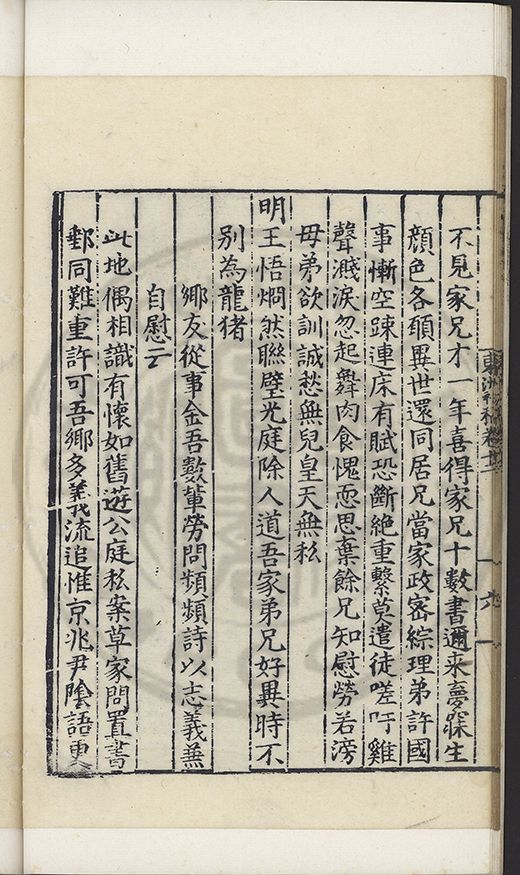 不見家兄才一年喜得家兄十數書邇來夢寐生
顔色各頎異世還同居兄當家政密綜理弟許國
事慚空踈連床有賦恐斷絶重繫莫遣徒嗟吁雞
聲濺淚忽起舞肉食愧恧思棄餘兄知慰勞若滂
毋弟欲訓誡愁無兒皇天無私
明王悟烱然聯璧光庭除人道吾家弟兄好異時不
别為龍猪
鄉友從事金吾數軰勞問頻頻詩以志義兼
自慰云
此地偶相識有懷如舊遊公庭私案草家問置書
郵同難重許可吾鄉多義流追惟京兆尹隂語更